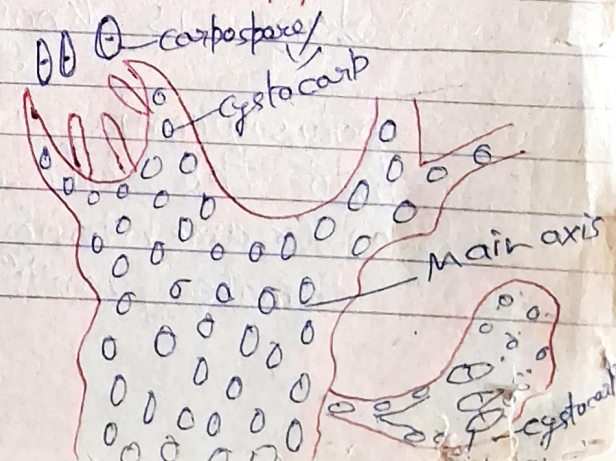 carpospore/
cystocarp
Main axis
cystocarp